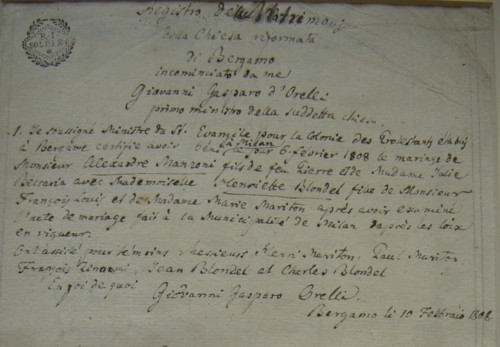 Registro delli Matrimonj
della Chiesa riformata
di Bergamo
incominciato da me
Giovanni Gasparo d'Orelli
primo ministro della suddetta chiesa
1. Je soussigné Ministre du St. Evangile pour la Colonie des Protestants établis
à Bergame certifie avoir béni à Milan ce jour 6 février 1808 le mariage de
Monsieur Alexandre Manzoni fils de feu Pierre et de Madame Julie
Beccaria avec Mademoiselle Henriette Blondel fille de Monsieur
François Louis et de Madame Marie Mariton après avoir examiné
l'acte de mariage fait à la Municipalité de Milan d'après les loix
en vigueur.
Ont assisté pour témoins Messieurs Henri Mariton, Paul Mariton
François Jean Blondel et Charles Blondel
En foi de quoi Giovanni Gasparo Orelli
Bergamo li 10 Febbraio 1808.